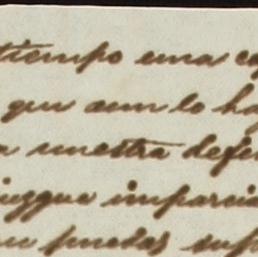 tiempo una co
que aun lo ha
a nuestra defe
juzgue imparcia
puedas sup